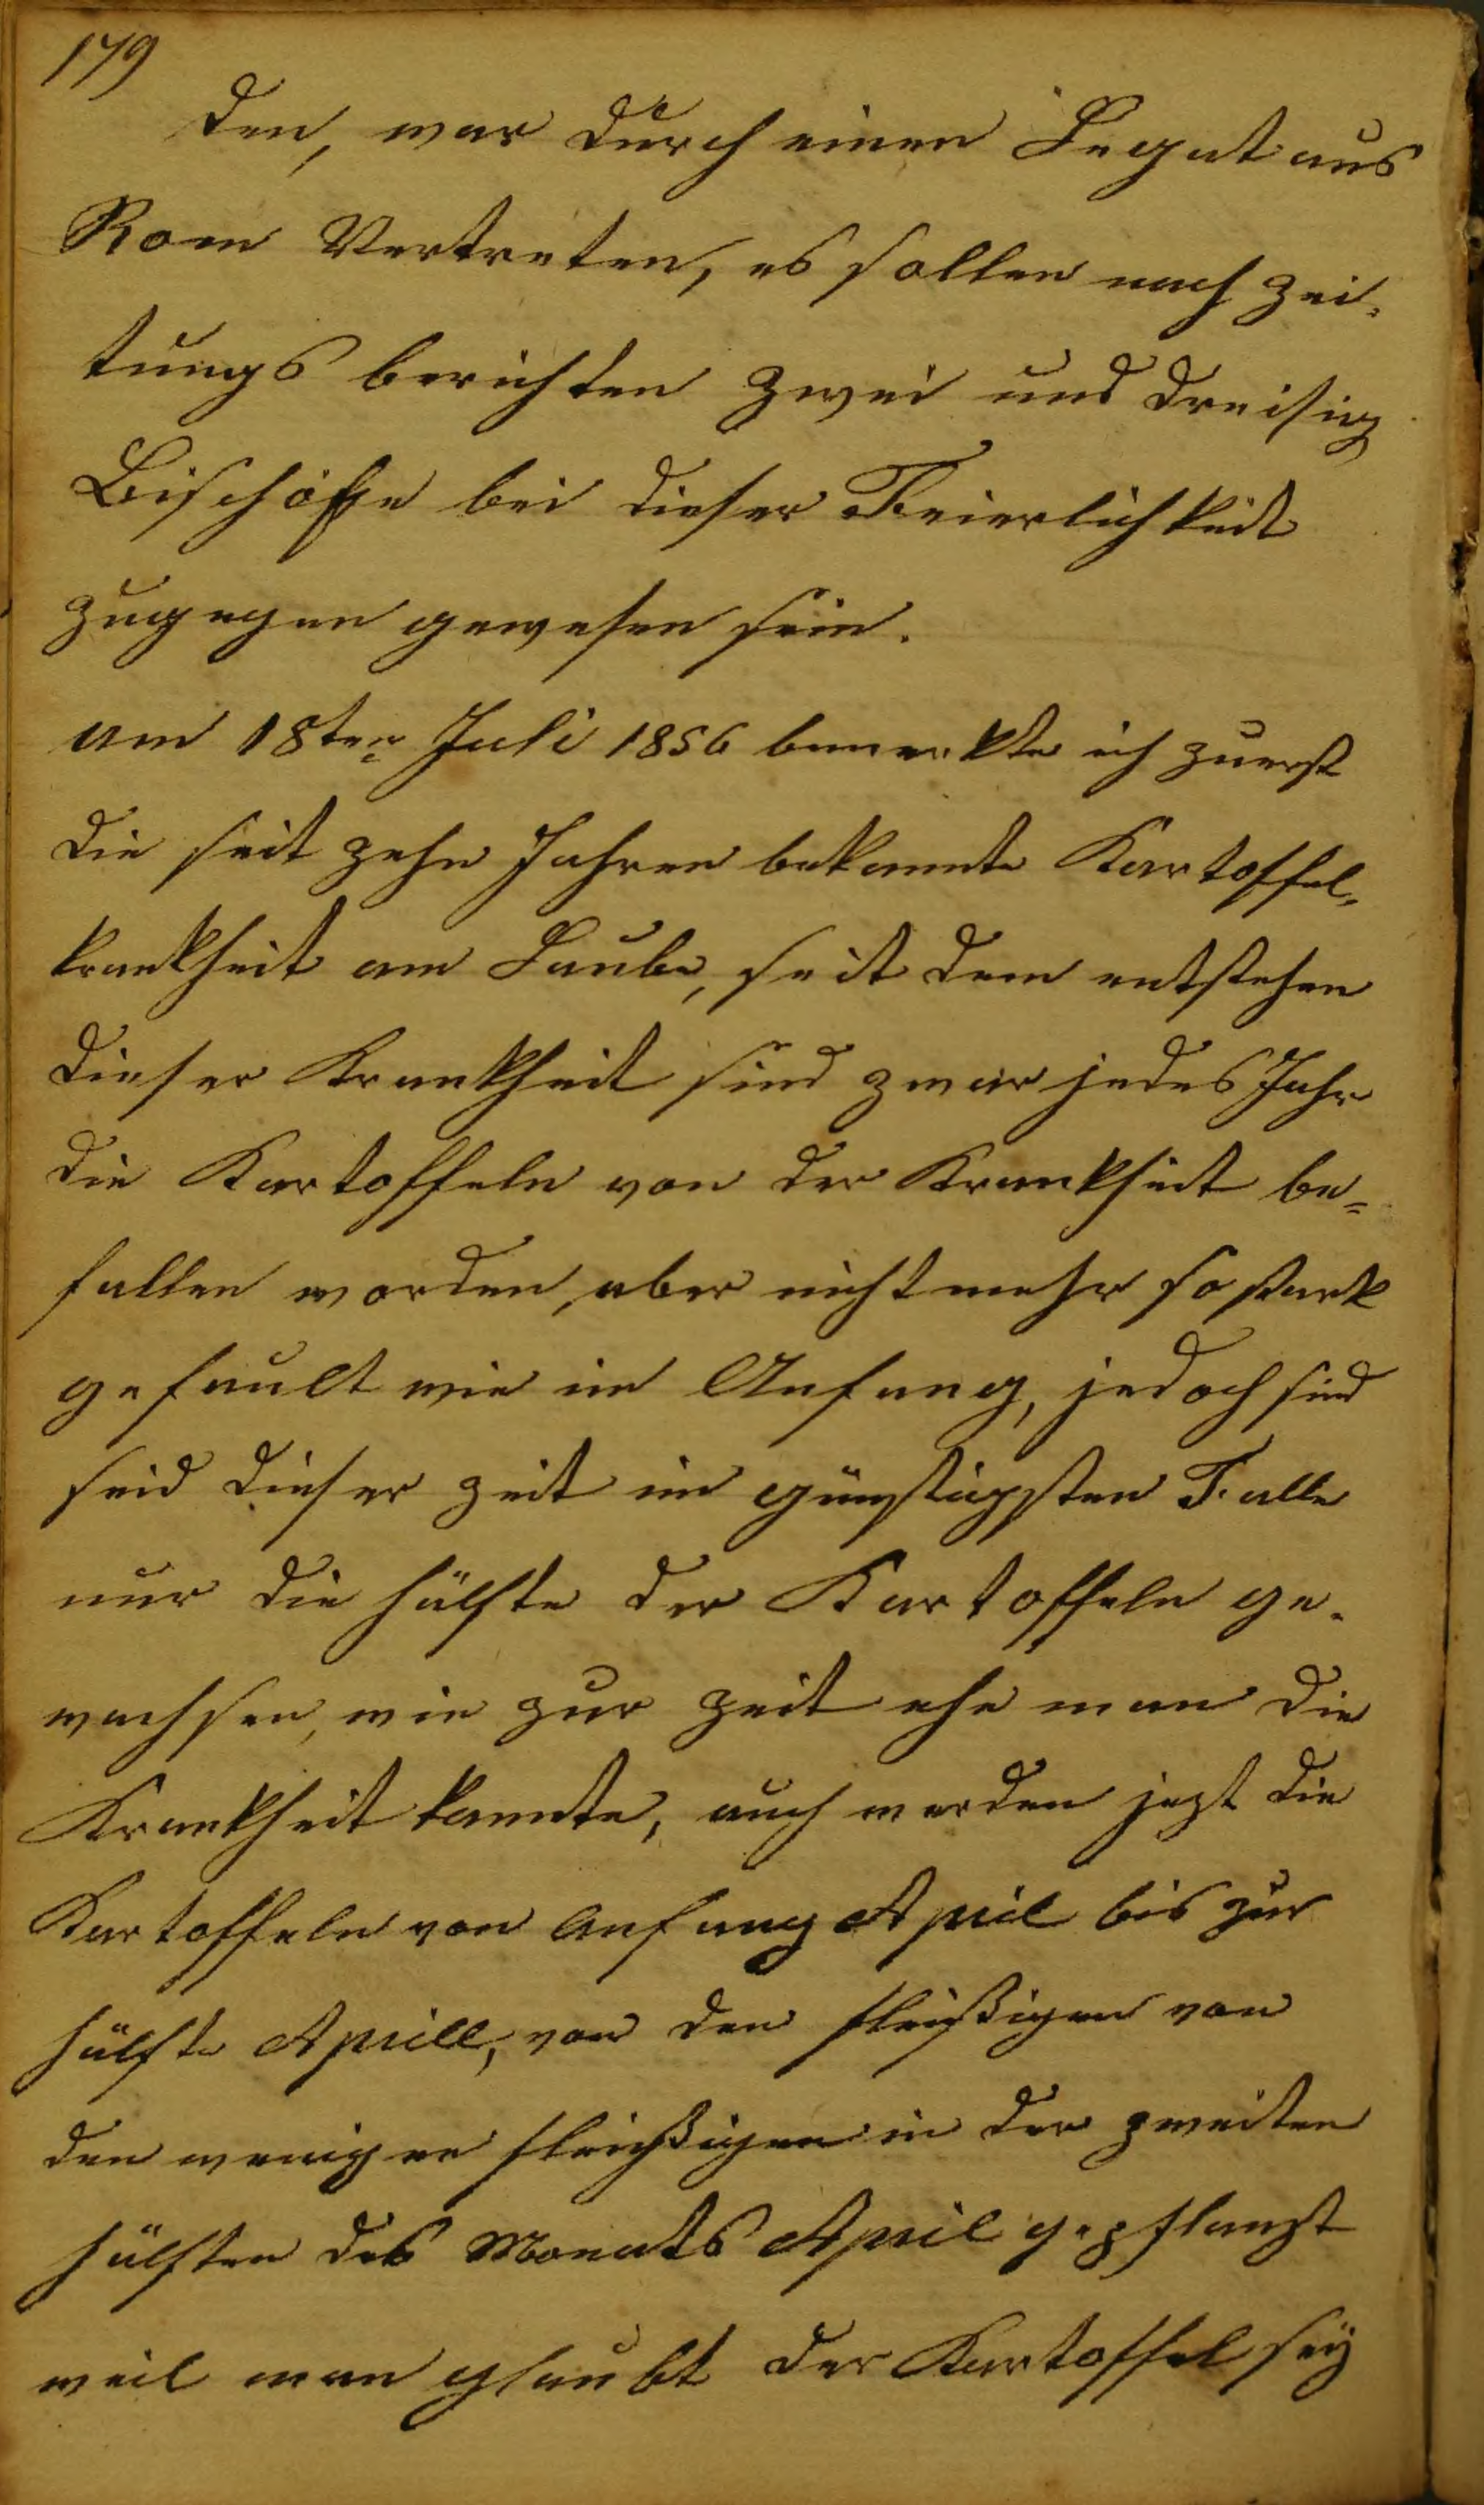 179
den, war durch einen Legat aus
Rom Vertreten, es sollen nach Zei-
tungs berichten zwei und dreisig
Bischöffe bei dieser Feierlichkeit
zugegen gewesen sein.
am 18ten Juli 1856 bemerkte ich zuerst
die seit zehn Jahren bekannte Kartoffel-
krankheit am Laube, seit dem entstehen
dieser Krankheit sind zwar jedes Jahr
die Kartoffeln von der Krankheit be=
fallen worden, aber nicht mehr so stark
gefault wie im Anfang, jedoch sind
seid dieser zeit im günstigsten Falle
nur die hälfte der Kartoffeln ge-
wachsen, wie zur zeit ehe man die
Krankheit kannte, auch werden jezt die
Kartoffeln von Anfang April bis zur
hälfte Aprill, von den fleißigen von
den weniger fleißigen in der zweiten
hälften des Monats April gepflanzt
weil man glaubt der Kartoffel sey